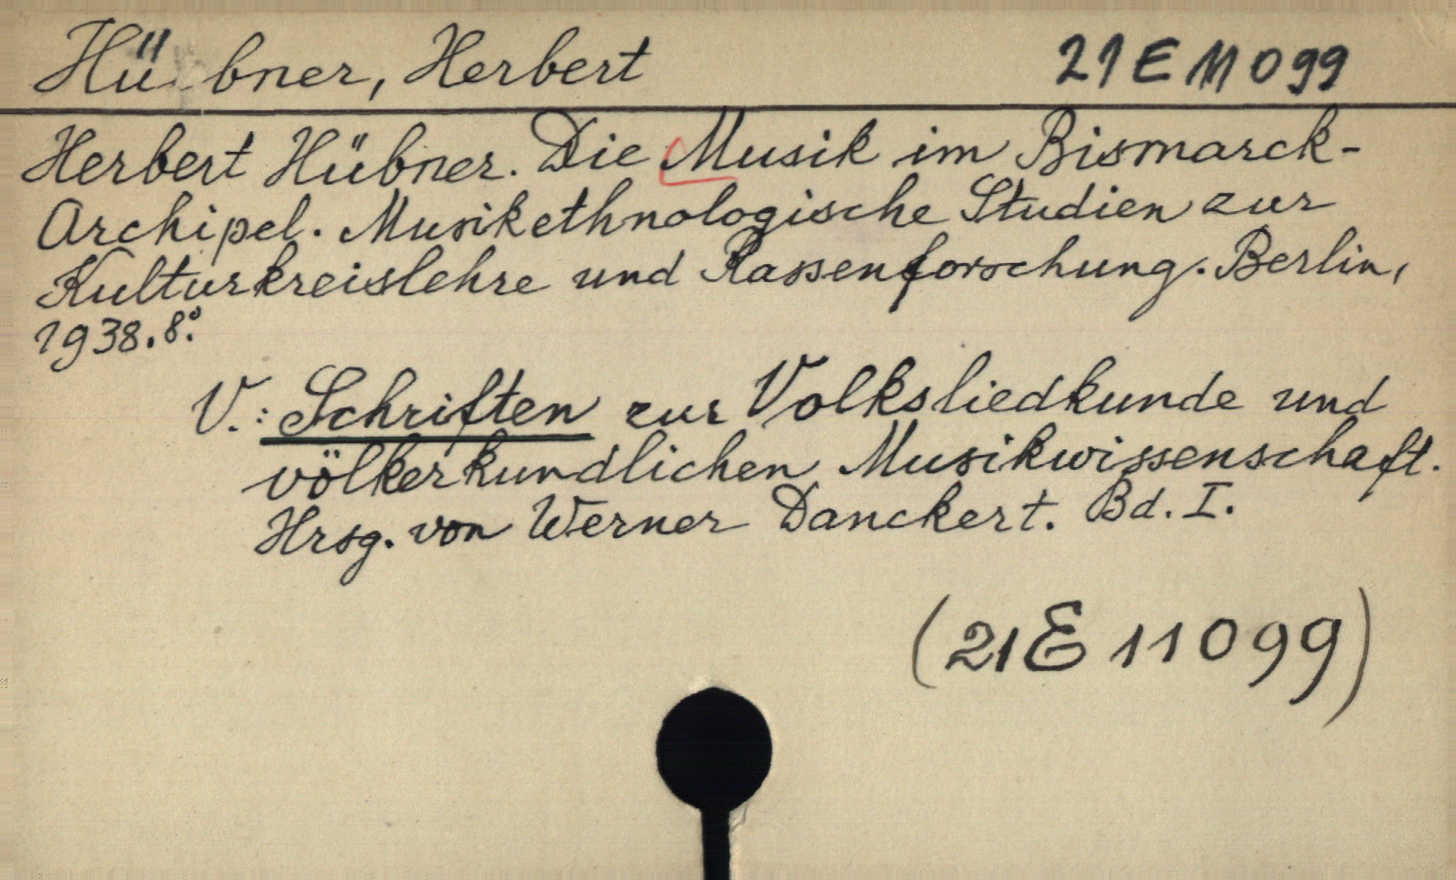 Hübner, Herbert 21 E 11 099
Herbert Hübner. Die Musik im Bismarck-
Archipel. Musikethnologische Studien zur
Kulturkreislehre und Rassenforschung. Berlin,
1938. 8.°
V.: Schriften zur Volksliedkunde und
völkerkundlichen Musikwissenschaft.
Hrsg. von Werner Danckert. Bd. I.
(21 E 11 099)